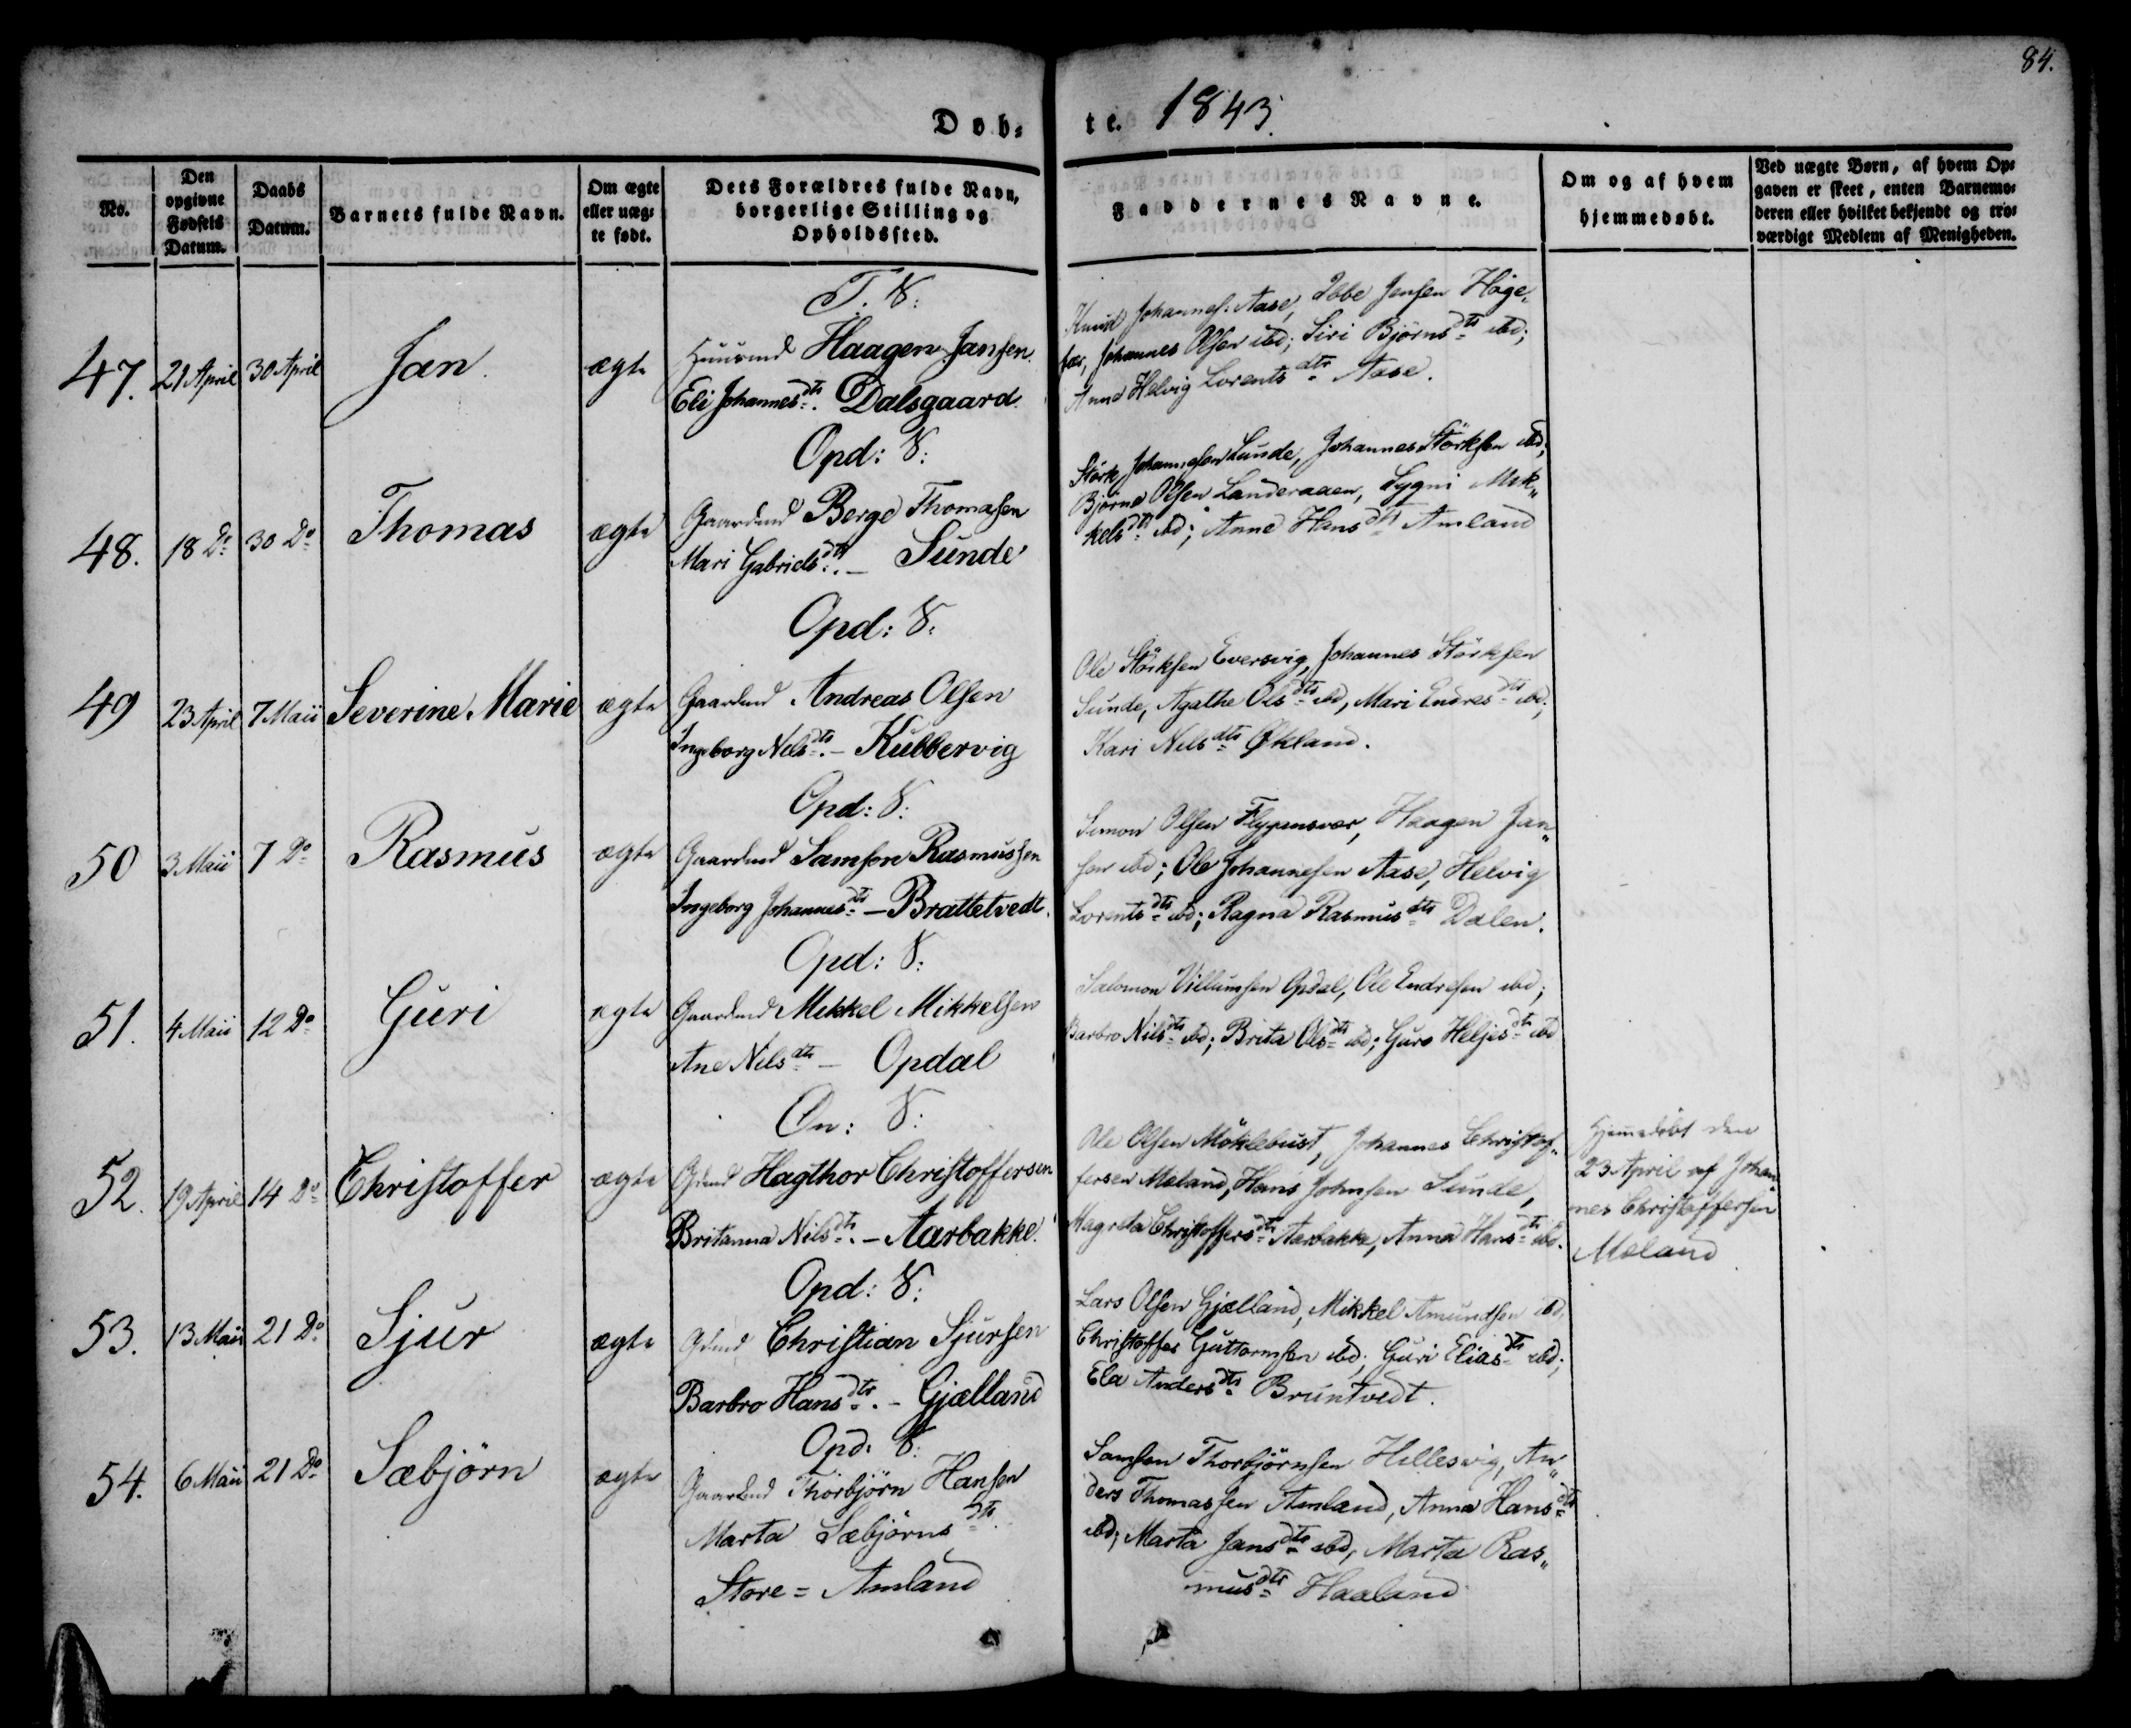 84.
Døb-
te. 1843.
No.
Den
opgivne
Fødsels
Datum.
Daabs
Datum.
Barnets fulde Navn.
Om ægte
eller uæg-
te født.
Dets Forældres fulde Navn,
borgerlige Stilling og
Opholdssted.
Faddernes Navne.
Om og af hvem
hjemmedøbt.
Ved uægte Børn, af hvem Op-
gaven er skeet, enten Barnemo-
deren eller hvilket bekjendt og tro-
værdigt Medlem af Menigheden.
T. S:
47. 21 April 30 April Jan. ægte
Huusmd Haagen Jansen
Eli Johannesdtr. Dalsgaard.
Knud Johannes: Aase, Ebbe Jensen Høge-
, Johannes Olsen ibd; Siri Bjørnsdtr ibd;
Anna Helvig Lorentsdtr Aase.
Opd: S:
48. 18 Do 30 Do Thomas ægte
Gaardmd Berge Thomasen
Mari Gabrielsdtr. - Sunde
Störk Johannesen Sunde, Johannes Störksen ibd;
Bjørne Olsen Landeraaen, Sygni Mik-
kelsdtr ibd; Anne Hansdtr Amland
Opd: S:
49 23 April 7 Maii Severine Marie ægte
Gaardmd Andreas Olsen
Ingeborg Nelsdtr. - Kubbervig
Ole Störksen Eversvig, Johannes Störksen
Sunde, Agathe Olsdtr ibd, Mari Endresdtr ibd;
Kari Nelsdtr Økland.
Opd: S:
50 3 Maii 7 Do Rasmus ægte
Gaardmd Samson Rasmussen
Ingeborg Johannesdtr - Brattetvedt.
Simon Olsen Flygansvær, Haagen Jan-
sen ibd; Ole Johannesen Aase, Helvig
Lorentsdtr ibd; Ragna Rasmusdtr Dalen.
Opd: S:
51. 4 Maii 12 Do Guri ægte
Gaardmd Mikkel Mikkelsen
Ane Nelsdtr - Opdal
Salomon Villumsen Opdal, Ole Endresen ibd;
Barbro Nilsdtr ibd; Brita Olsdtr ibd; Guro Heljesdtr ibd
On: S:
52. 19 April 14 Do Christoffer ægte
Gdmd Hagthor Christoffersen
Britanna Nilsdtr. - Aarbakke.
Ole Olsen Möklebust, Johannes Christof-
fersen Meland, Hans Johnsen Sunde,
Magreta Christoffersdtr Aarbakke, Anna Hansdtr ibd.
Hjemedöbt den
23 April af Johan-
nes Christoffersen
Meland
Opd: S:
53. 13 Maii 21 Do Sjur ægte
Gdmd Christian Sjursen
Barbro Hansdtr. - Gjælland
Lars Olsen Gjælland, Mikkel Amundsen ibd,
Christoffer Guttormsen ibd; Guri Eliasdtr ibd;
Ela Andersdtr Bruntvedt.
Opd: S:
54. 6 Maii 21 Do Sæbjörn ægte
Gaardmd Thorbjörn Hansen
Marta Sæbjörnsdtr.
Store = Amland
Samson Thorbjörnsen Hillesvig, An-
ders Thomassen Amland, Anna Hansdtr
ibd; Marta Jansdtr ibd, Marta Ras-
musdtr Haaland